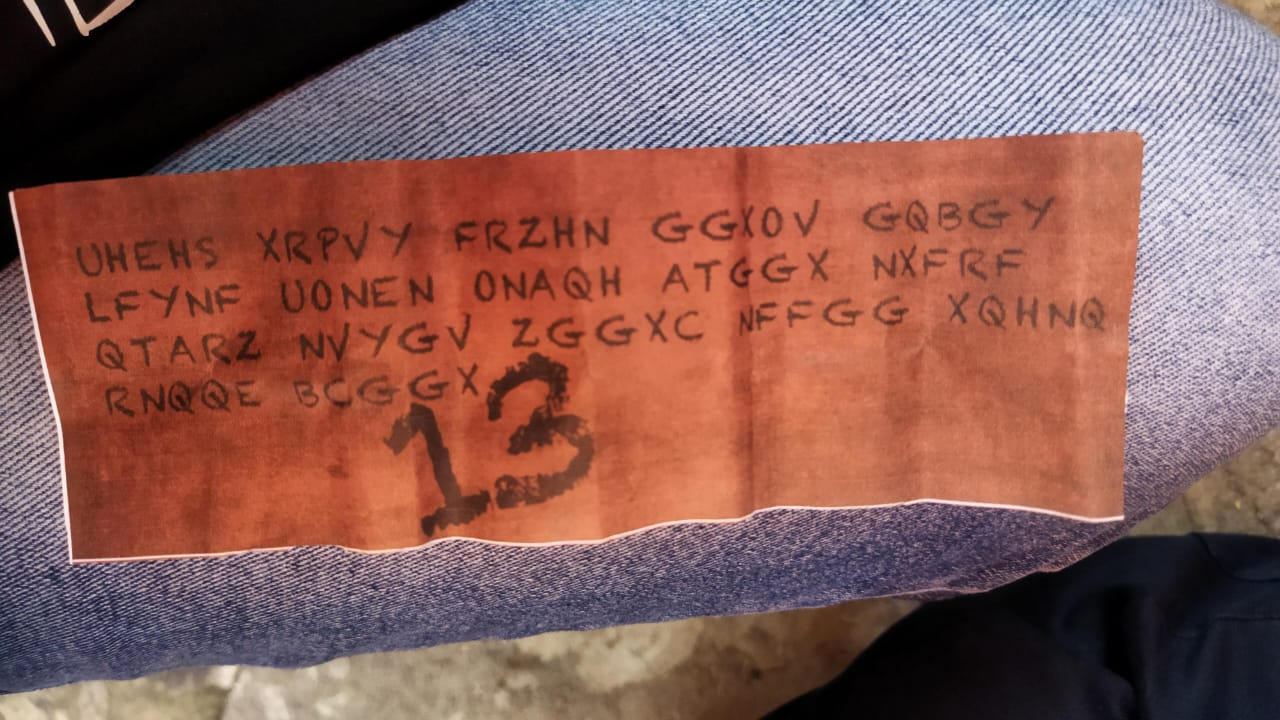 UHEHS XRPVY FRZHN GGXOV GQBGY
LFYNF UONEN ONAQH ATGGX NXFRF
QTARZ NVYGV ZGGXC NFFGG XQHNQ
RNQQE BCGGX
13